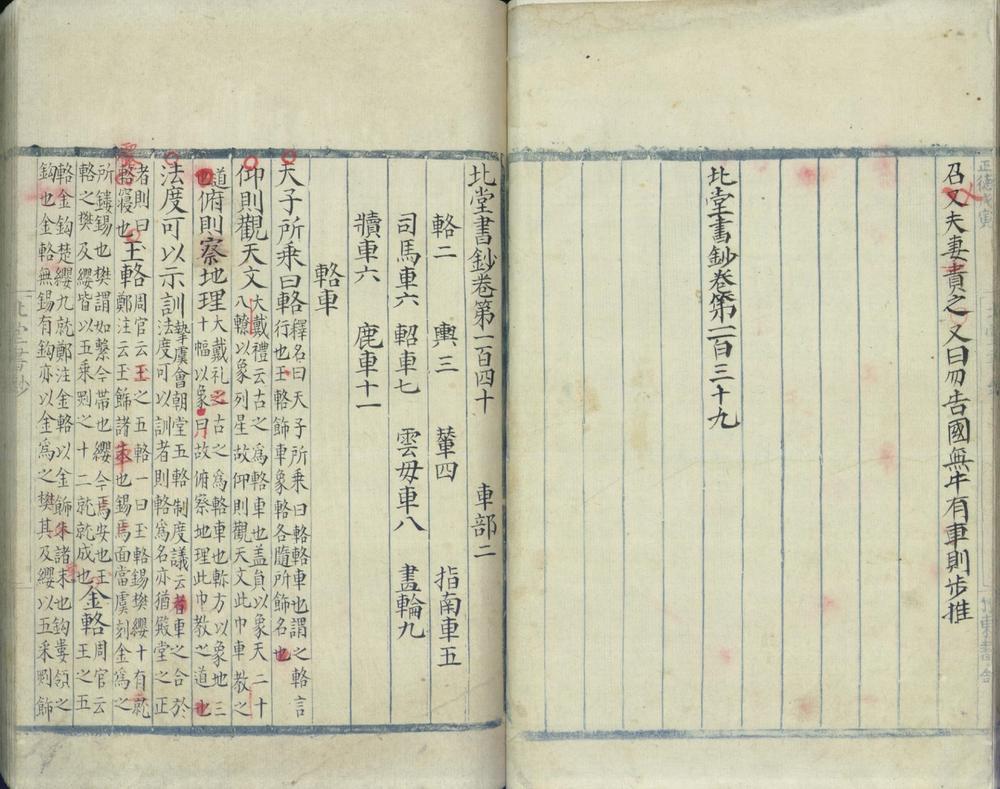 召又夫妻責之又曰勿告國無牛有車則步推
北堂書鈔卷第一百三十九
正德戊寅
北堂書鈔卷第一百四十 車部二
輅二 輿三 輦四 指南車五
司馬車六 軺車七 雲母車八 畫輪九
犢車六 鹿車十一
輅車
天子所乘曰輅 釋名曰天子所乘曰輅輅車也謂之輅言
行也玉輅飾車象輅各隨所飾名也
仰則觀天文 大戴禮云古之為輅車也盖負以象天二十
八轑以象列星故仰則觀天文此巾車教之
道也俯則察地理 大戴礼之古之為輅車也軫方以象地三
十幅以象曰月故俯察地理此巾教之道也
法度可以示訓 摯虞會朝堂五輅制度議云者車之合於
法度可以訓者則輅為名亦猶殿堂之正
者則曰
輅寢也玉輅 周官云王之五輅一曰玉輅錫樊纓十有就
鄭注云玉飾諸末也錫馬面當虞刻金為之
所鏤錫也樊謂如繫今帶也纓今馬安也玉
輅之樊及纓皆以五乘罽之十二就就成也金輅 周官云
王之五
輅金鈎楚纓九就鄭注金輅以金飾朱諸末也鈎婁領之
鈎也金輅無錫有鈎亦以金為之樊其及纓以五釆罽飾